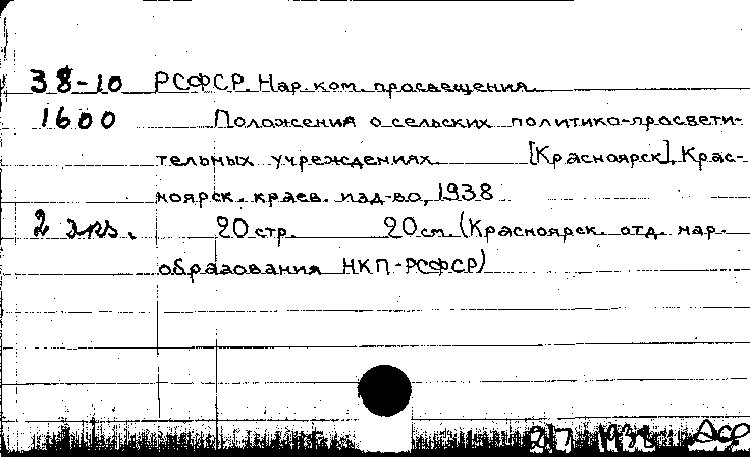 38-10 РСФСР. Нар. ком. просвещения.
1600 Положения о сельских политико-просвети-
тельных учреждениях. [Красноярск], Крас-
ноярск. краев. изд-во, 1938
2 экз. 20 стр. 20 см. (Красноярск. отд. нар.
образования НКП-РСФСР)
2/7 1938